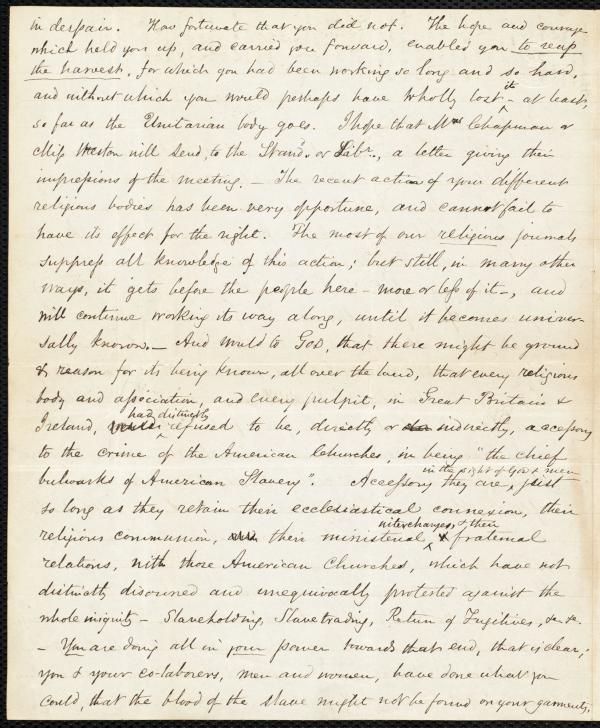 in despair. How fortunate that you did not. The hope and courage
which held you up, and carried you forward, enabled you to reap
the harvest, for which you had been working so long and so hard,
and without which you would perhaps have wholly lost it - at least,
so far as the Unitarian body goes. I hope that Mrs Chapman or
Miss Weston will send, to the Stand. or Libr., a letter giving their
impressions of the meeting. - The recent action of your different
religious bodies has been very opportune, and cannot fail to
have its effect for the right. The most of our religious journals
suppress all knowledge of this action; but still, in many other
ways, it gets before the people here - more or less of it -, and
will continue working its way along, until it becomes univer-
sally known. - And would to God, that there might be ground
& reason for its being known, all over the land, that every religious
body and association, and every pulpit, in Great Britain &
Ireland, had distinctly refused to be, directly or indirectly, accessory
to the crime of the American Churches, in being "the chief
bulwarks of American Slavery". Accessory they are, in the sight of God & men just
so long as they retain their ecclesiastical connexion, their
religious communion, their ministerial interchanges, & their fraternal
relations, with those American Churches, which have not
distinctly disowned and unequivocally protested against the
whole iniquity - Slaveholding, Slavetrading, Return of Fugitives, &c. &c.
- You are doing all in your power towards that end, that is clear;
you & your co-laborers, men and women, have done what you
could, that the blood of the slave might not be found on your garments.